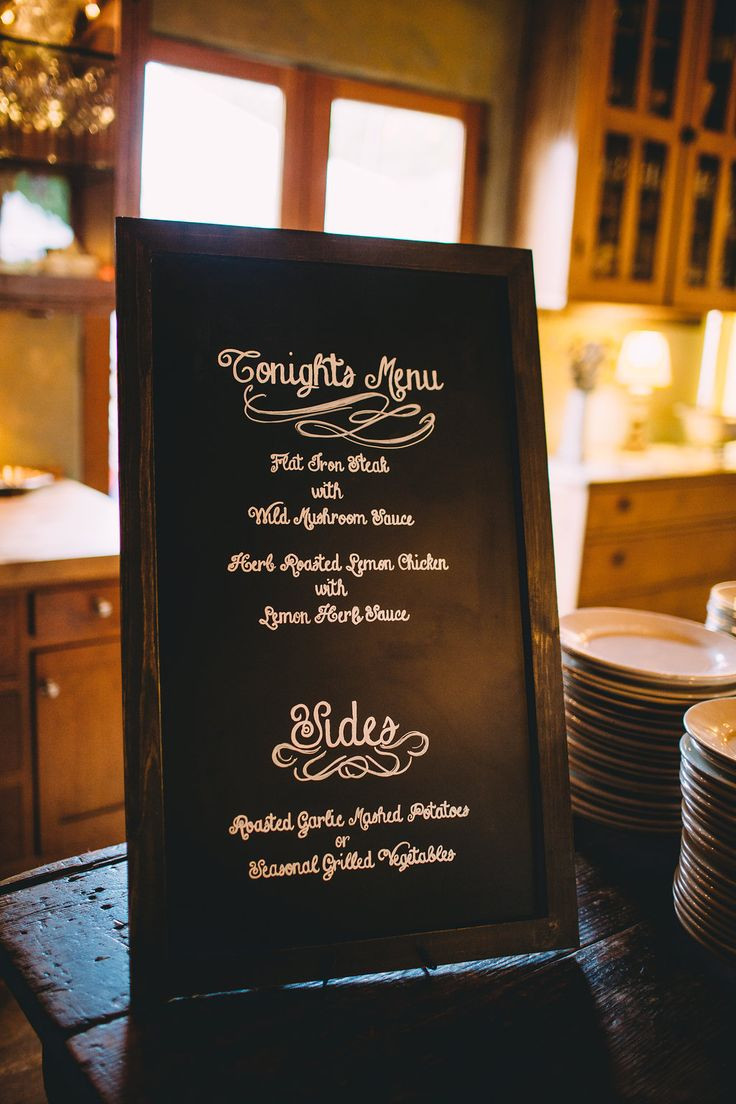 Tonight's Menu
Flat Iron Steak
with
Wild Mushroom Sauce
Herb Roasted Lemon Chicken
with
Lemon Herb Sauce
Sides
Roasted Garlic Mashed Potatoes
or
Seasonal Grilled Vegetables